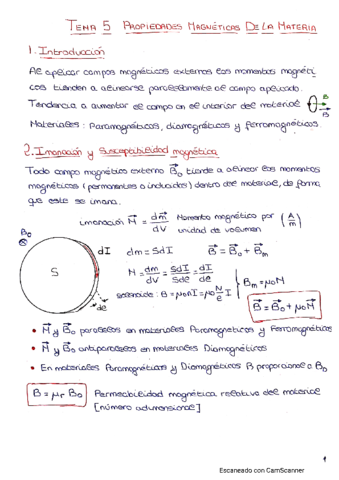 TEMA 5 PROPIEDADES MAGNÉTICAS DE LA MATERIA
1. Introducción
Al aplicar campos magnéticos externos los momentos magnéti
cos tienden a alinearse paralelamente al campo aplicado.
Tendencia a aumentar el campo en el interior del material
B
B
Materiales: Paramagnéticos, diamagnéticos y ferromagnéticos.
2. Imanación y Susceptibilidad magnética
Todo campo magnético externo B⃗₀ tiende a alinear los momentos
magnéticos (permanentes o inducidos) dentro del material, de forma
que este se imana.
imanación M⃗ = dm⃗/dV Momento magnético por unidad de volumen (A/m)
B₀
S
dI
dl
dm = SdI B⃗ = B⃗₀ + B⃗m
M = dm/dV = SdI/Sdl = dI/dl
solenoide: B = μ₀nI = μ₀ N/l I
Bm = μ₀M
B⃗ = B⃗₀ + μ₀M⃗
• M⃗ y B⃗₀ paralelos en materiales Paramagnéticos y Ferromagnéticos
• M⃗ y B⃗₀ antiparalelos en materiales Diamagnéticos
• En materiales Paramagnéticos y Diamagnéticos B proporcional a B₀
B = μr B₀ Permeabilidad magnética relativa del material
[número adimensional]
1
Escaneado con CamScanner